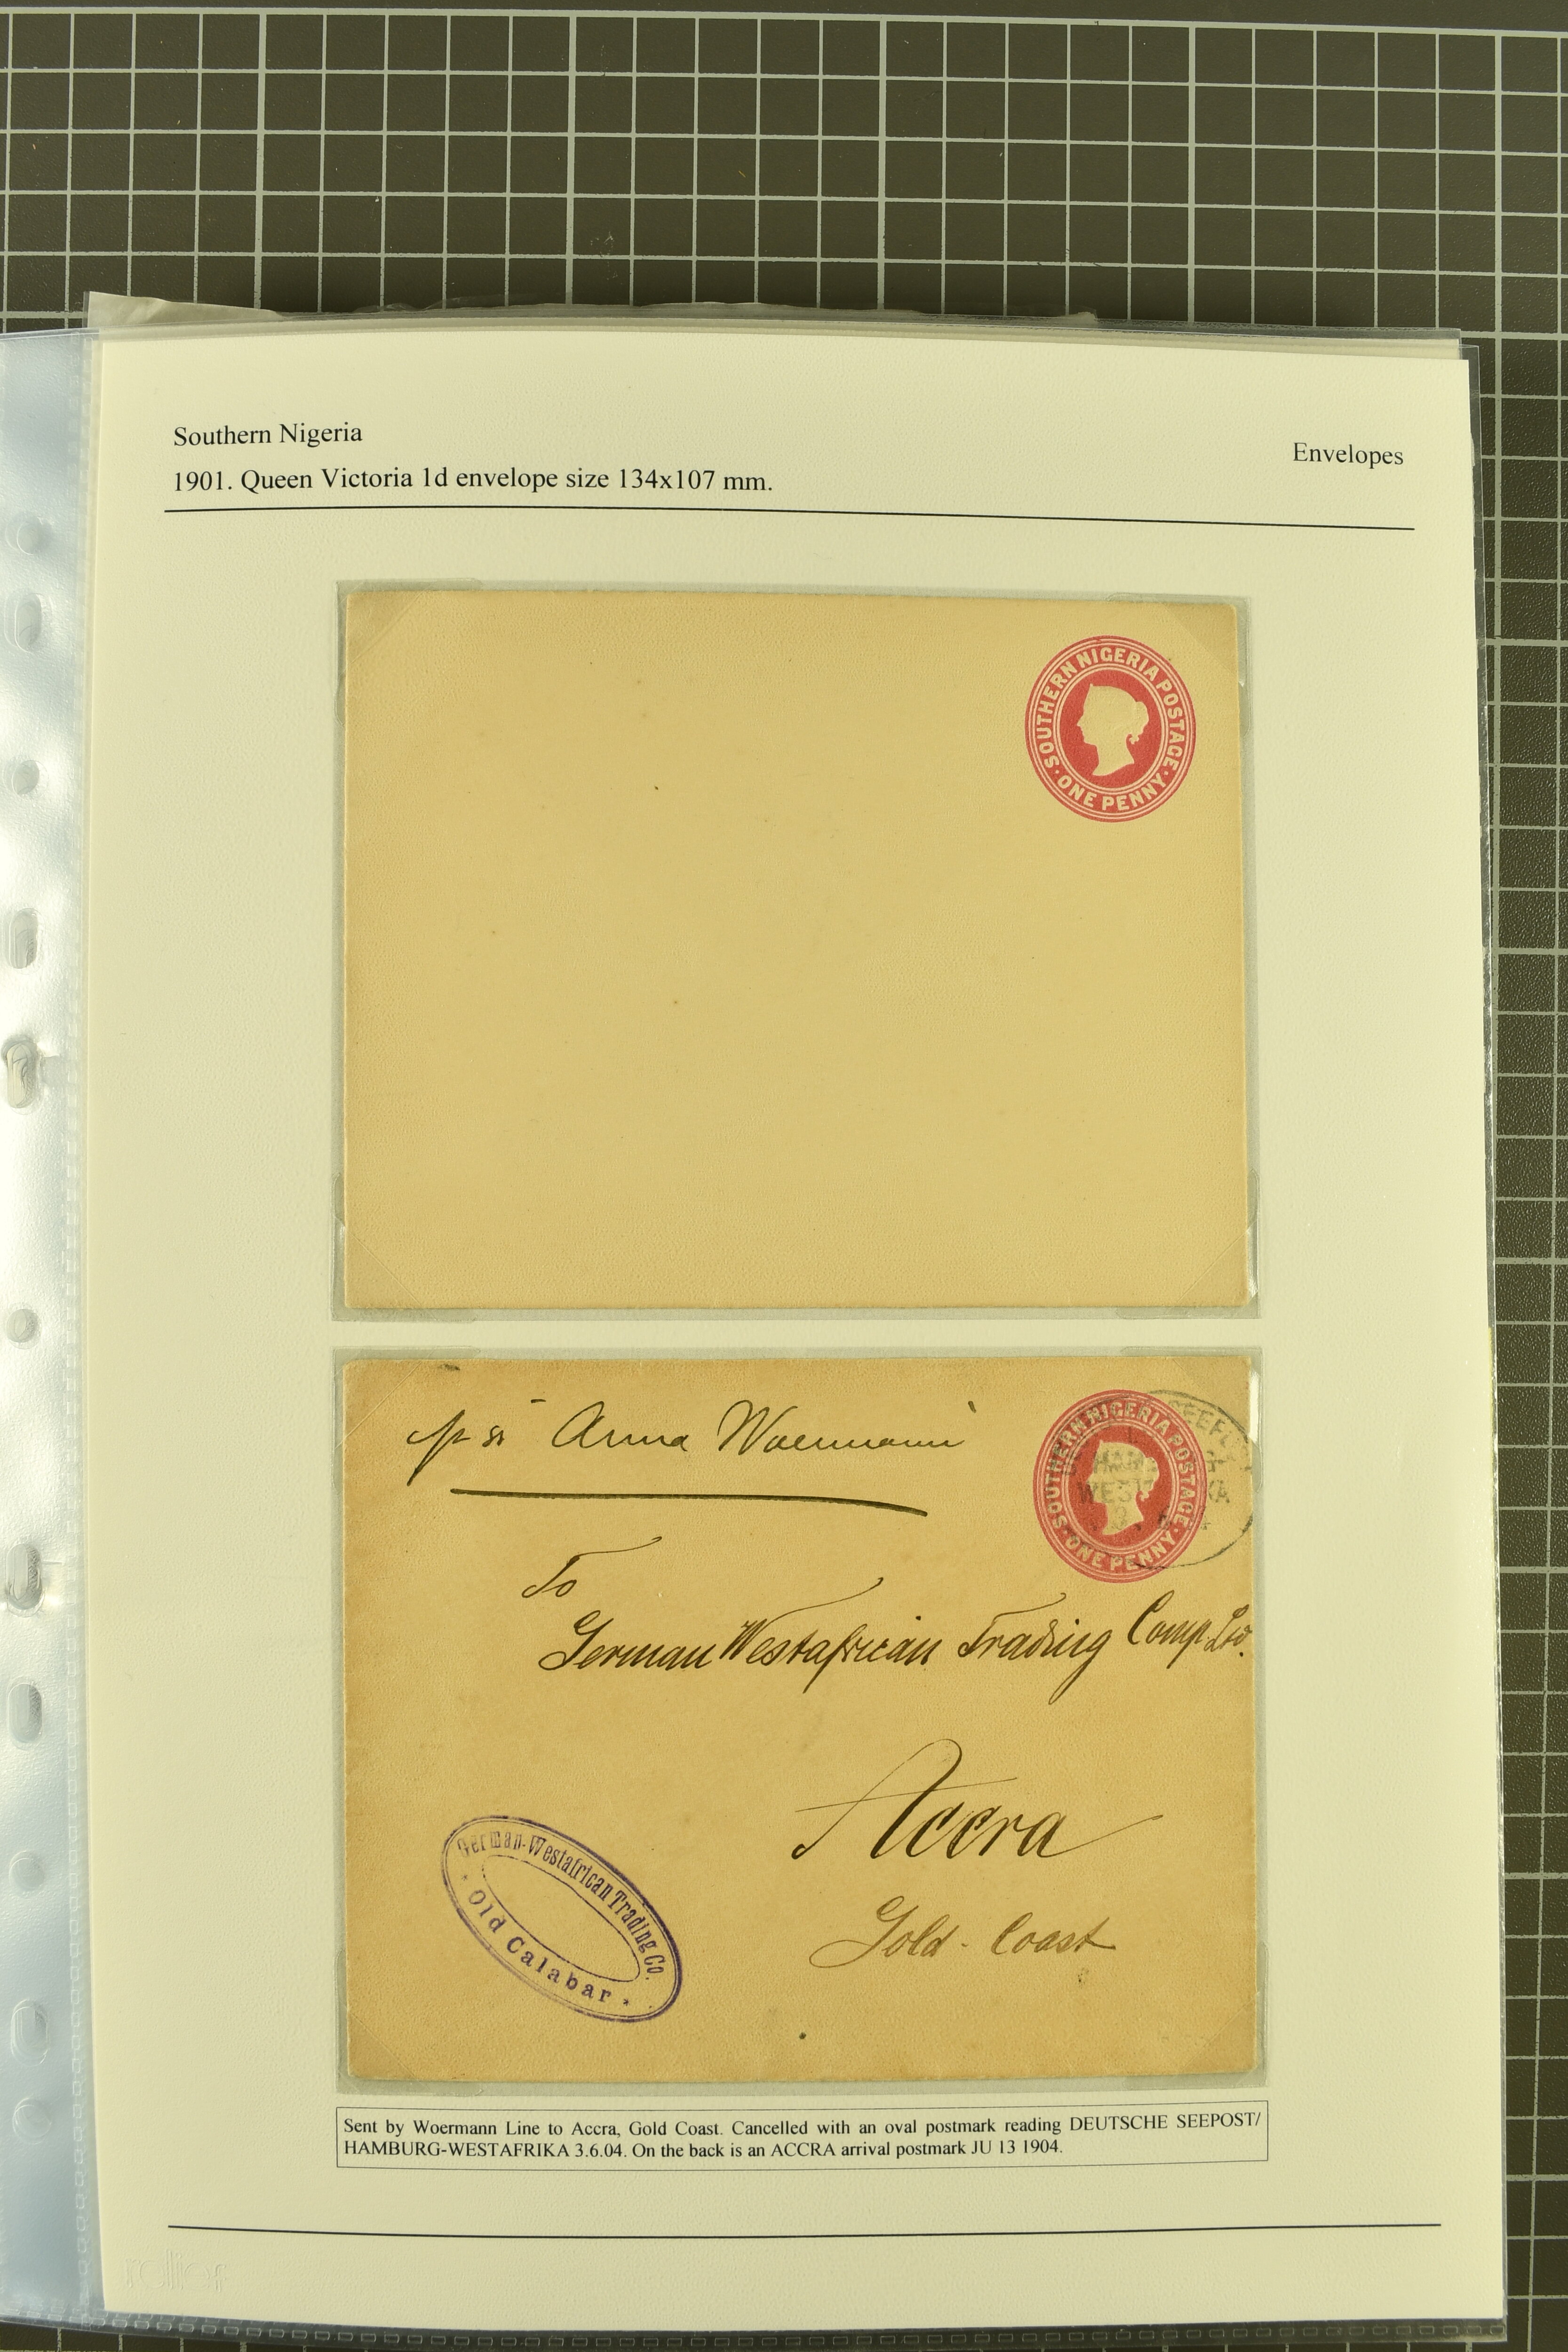 Southern Nigeria
Envelopes
1901. Queen Victoria 1d envelope size 134x107 mm.
SOUTHERN NIGERIA POSTAGE
· ONE PENNY ·
p ss Anna Woermann
SOUTHERN NIGERIA POSTAGE
· ONE PENNY ·
To
German Westafrican Trading Comp. Ltd.
Accra
Gold-Coast
German-Westafrican Trading Co.
* Old Calabar *
Sent by Woermann Line to Accra, Gold Coast. Cancelled with an oval postmark reading DEUTSCHE SEEPOST/
HAMBURG-WESTAFRIKA 3.6.04. On the back is an ACCRA arrival postmark JU 13 1904.